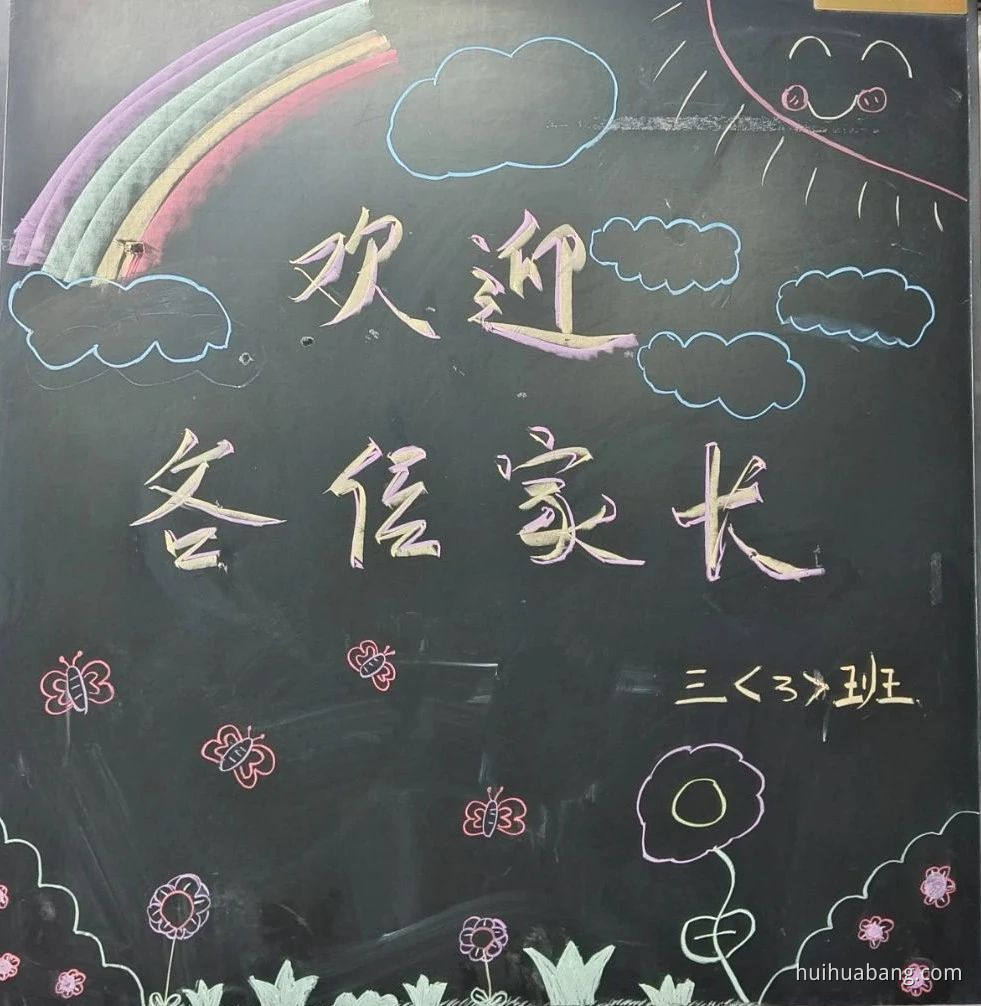 欢迎
各位家长
三<3>班
huihuabang.com